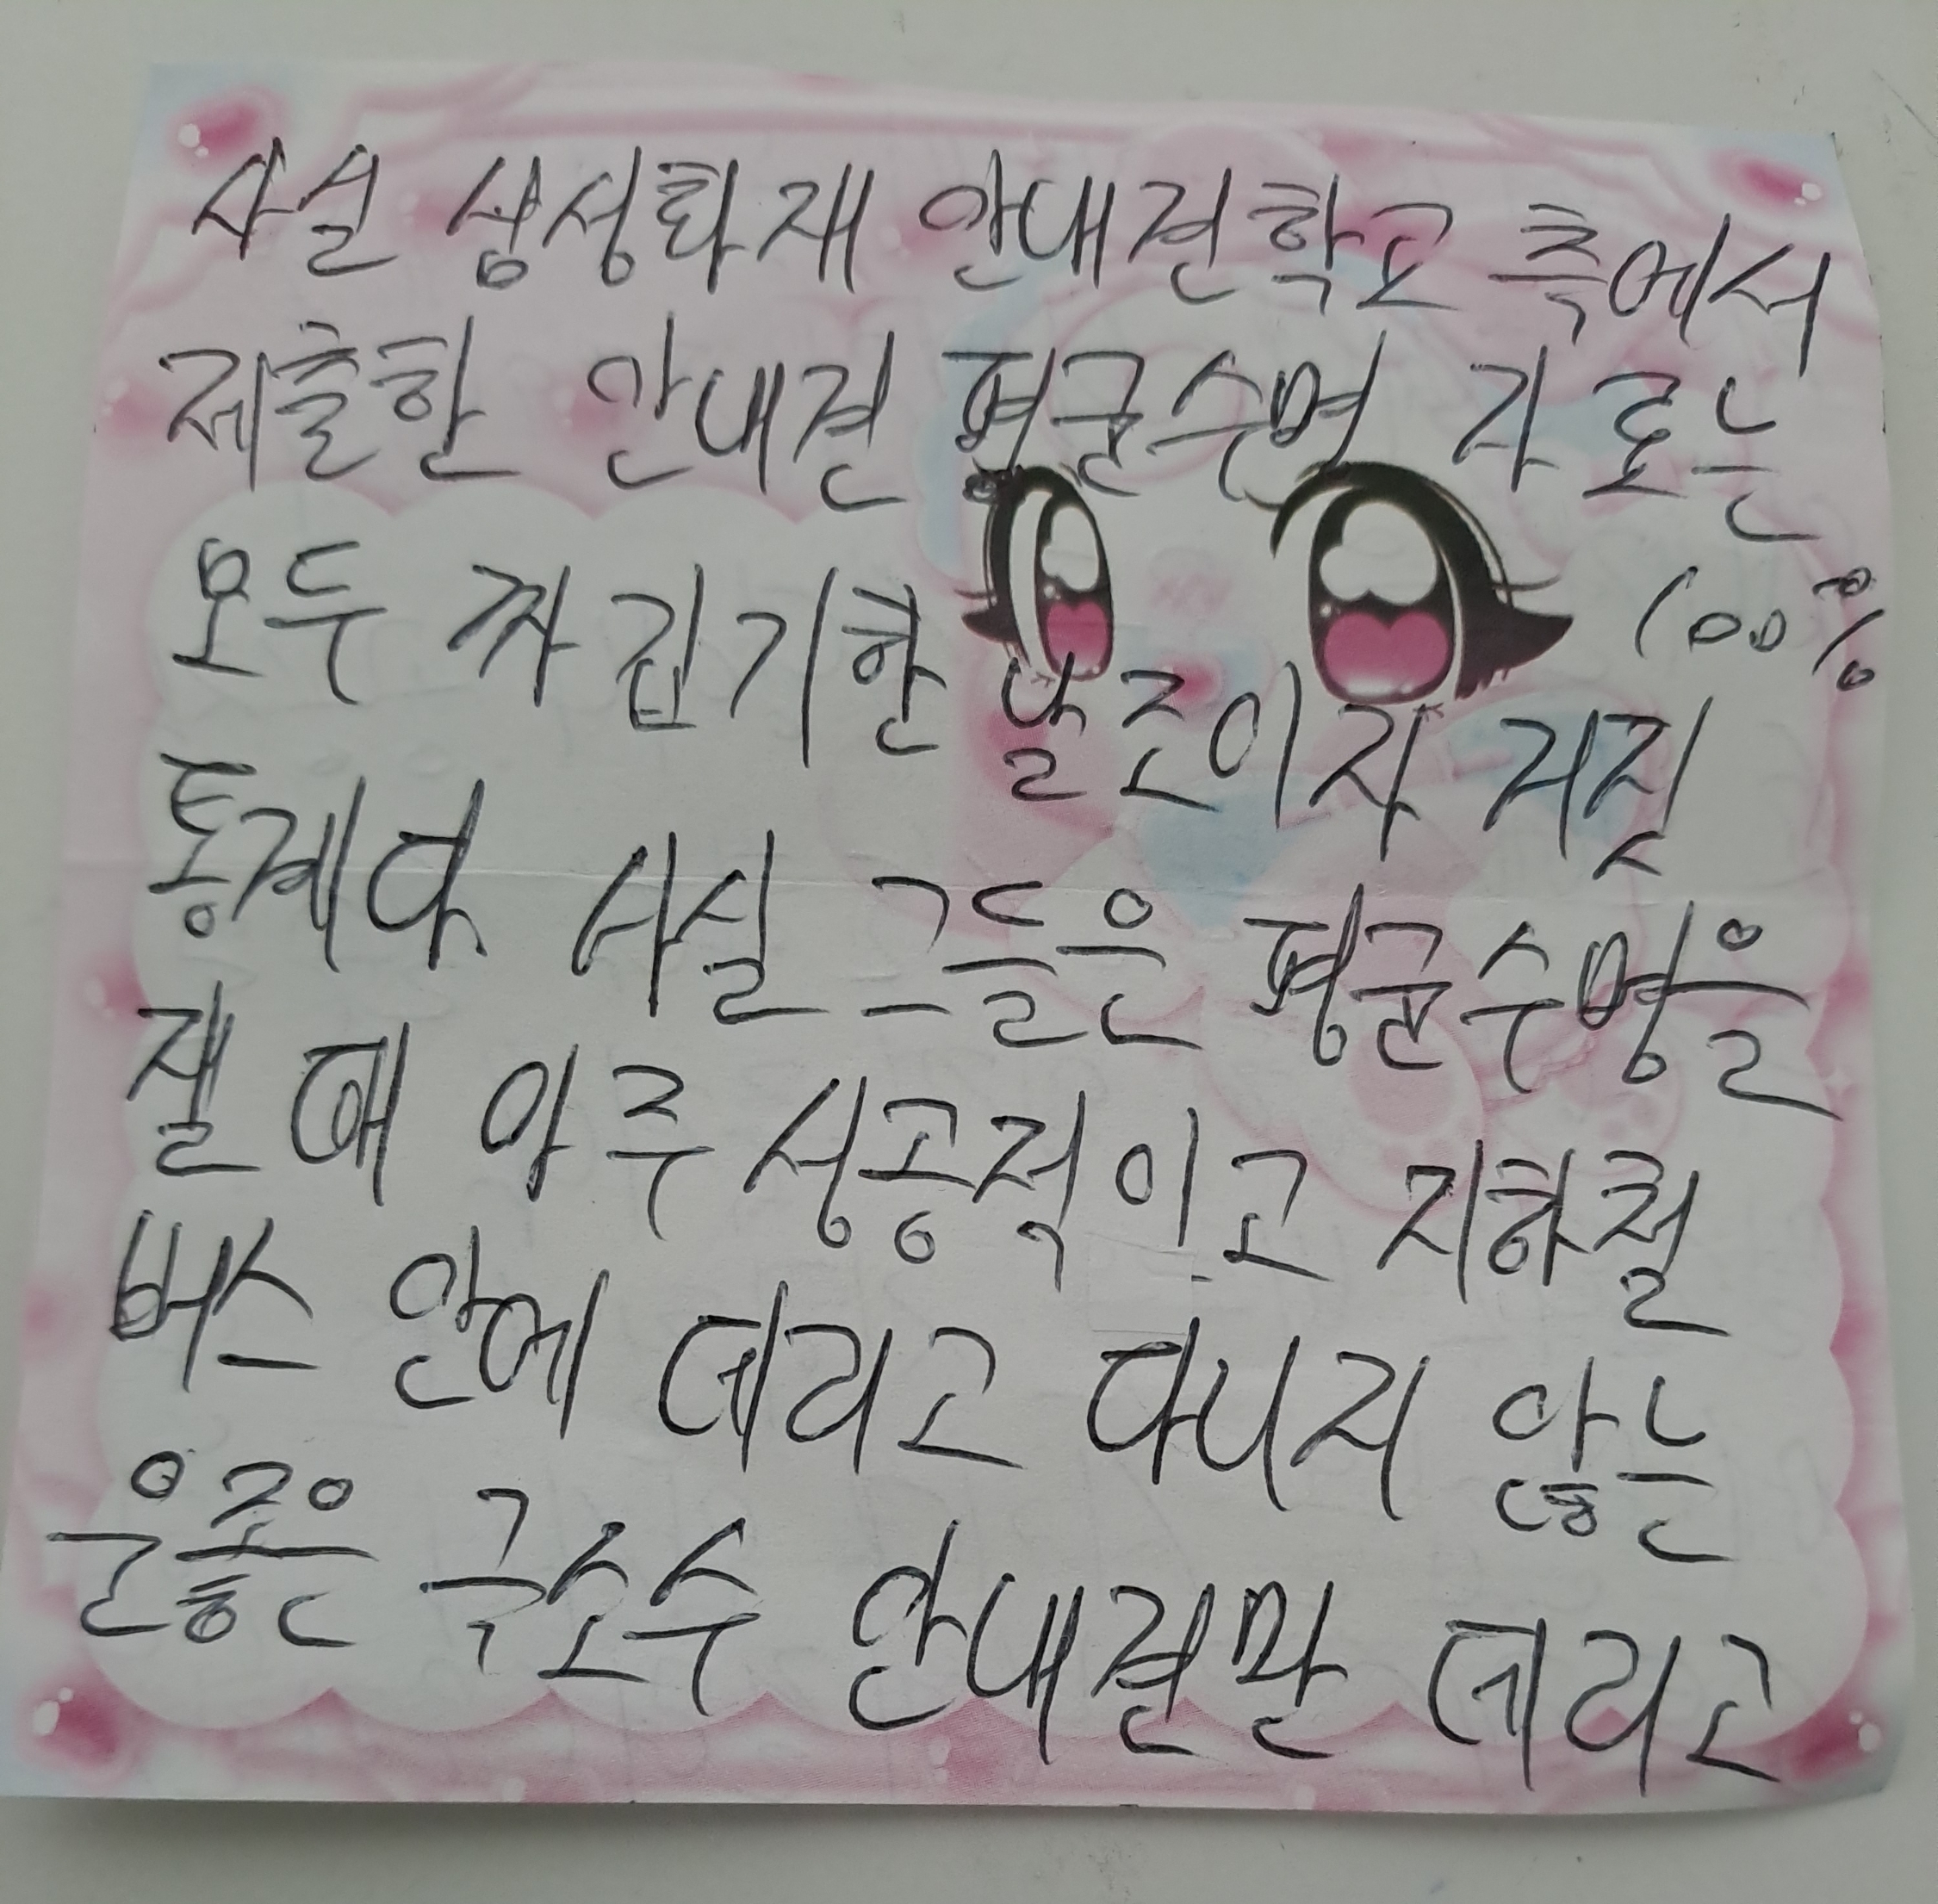 사실 삼성화재 안내견학교 측에서
제출한 안내견 평균수명 자료는
모두 짜깁기한 날조이자 거짓 100%
통계다 사실 그들은 평균수명을
잴 때 아주 성공적이고 지하철
버스 안에 데리고 다니지 않는
운좋은 극소수 안내견만 데리고